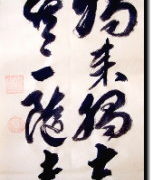 獨来獨去
無一隨者